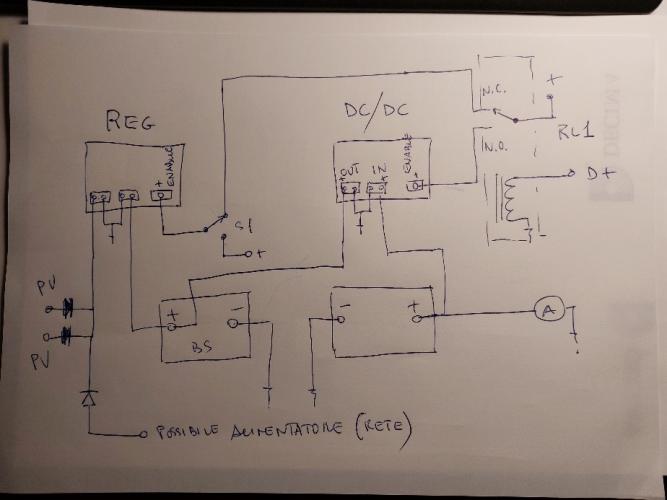 REG
DC/DC
N.C.
+
RL1
N.O.
+
ENABLE
+ OUT
IN +
+
ENABLE
S1
+
D+
PV
PV
+
-
BS
-
+
A
POSSIBILE ALIMENTATORE (RETE)
DECIMA